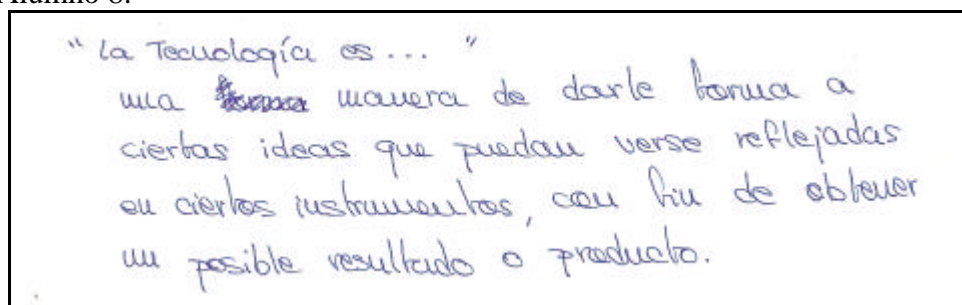 Alumno 8:
"La Tecnología es... "
una manera de darle forma a
ciertas ideas que puedan verse reflejadas
en ciertos instrumentos, con fin de obtener
un posible resultado o producto.